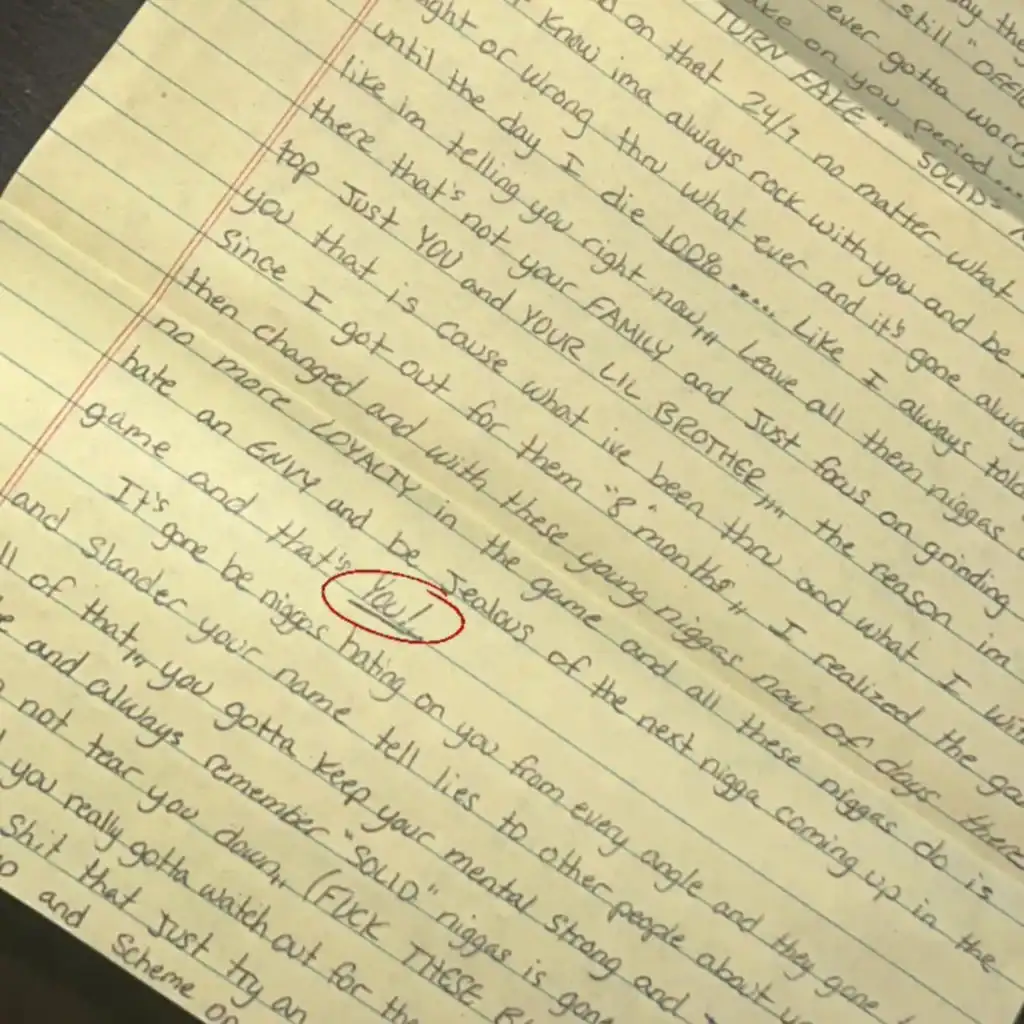 day they
still" OFFIC
ever gotta worry
ake on you period ....
TURN FAKE".. SOLID"
d on that 24/7 no matter what
I know ima always rock with you and be
ight or wrong thru what ever and it's gone always
until the day I die 100%..... Like I always told
like im telling you right now,,,, leave all them niggas
there that's not your FAMILY and Just focus on grinding
top Just YOU and YOUR LIL BROTHER,,,, the reason im
you that is cause what ive been thru and what I wit
Since I got out for them "8" months,, I realized the ga
then changed and with these young niggas now of days there
no more LOYALTY in the game and all these niggas do is
hate an ENVY and be Jealous of the next nigga coming up in the
game and that's You!
It's gone be niggas hating on you from every angle and they gone
and Slander your name tell lies to other people about yo
ll of that,,, you gotta keep your mental strong and
e and always remember "SOLID" niggas is gone
not tear you down,, (FUCK THESE
you really gotta watch out for the
Shit that Just try an
and Scheme on